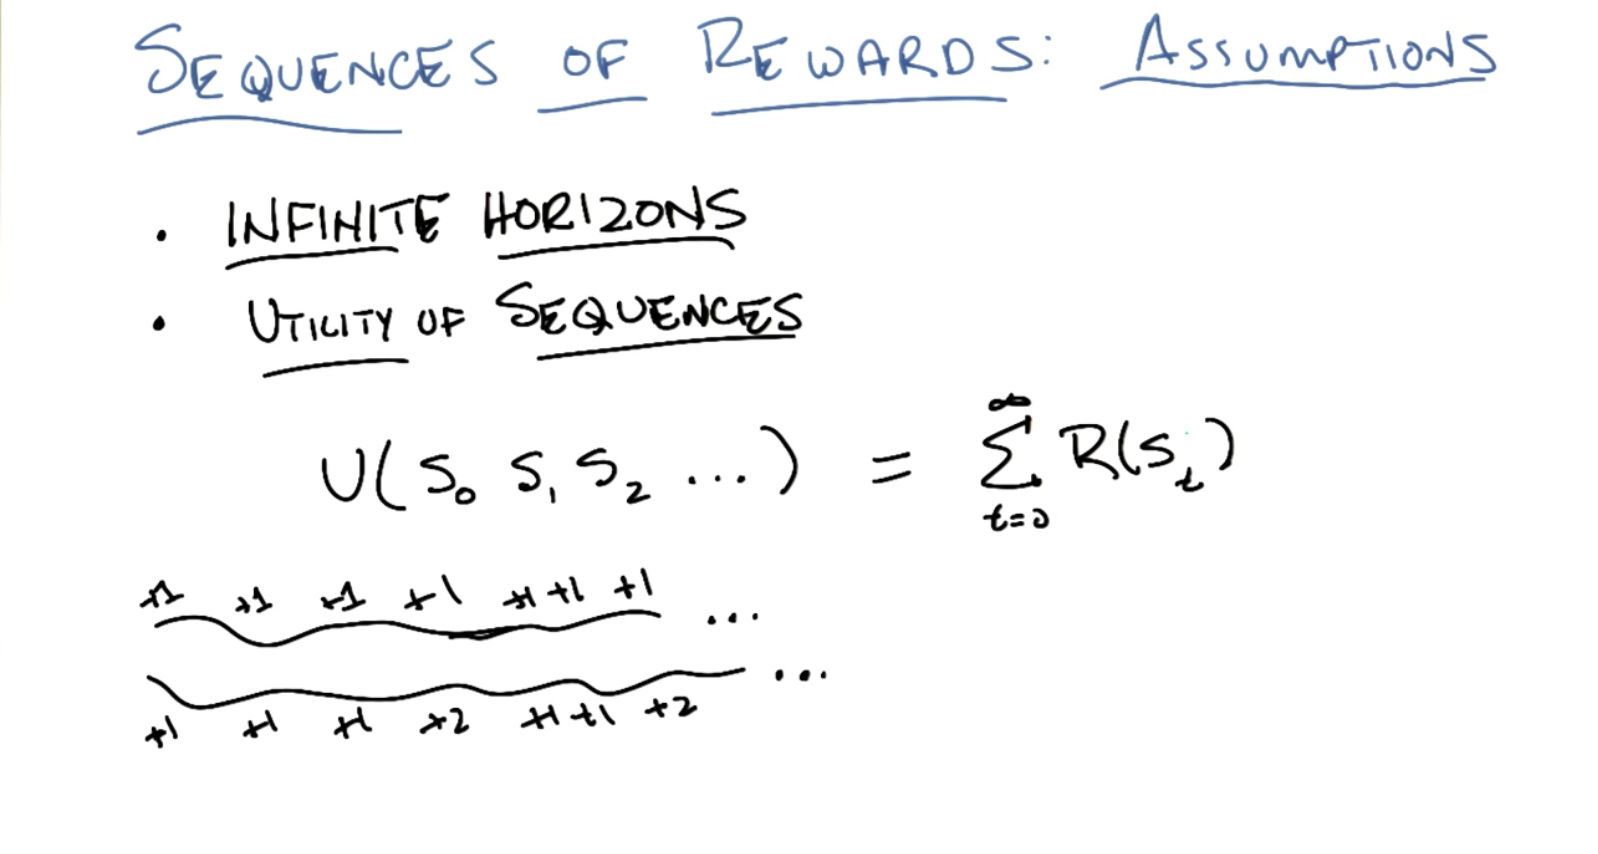 SEQUENCES OF REWARDS: ASSUMPTIONS
• INFINITE HORIZONS
• UTILITY OF SEQUENCES
U( S₀ S₁ S₂ ... ) = ∑_{t=0}^{∞} R(S_t)
+1 +1 +1 +1 +1 +1 +1 ...
...
+1 +1 +1 +2 +1 +1 +2